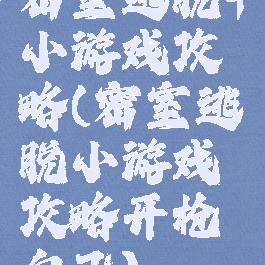 密室逃脱小
小游戏攻
略(密室逃
脱小游戏
攻略开枪
自己)